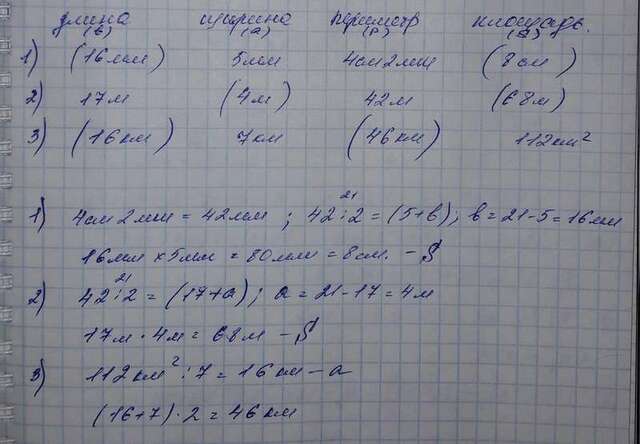 длина ширина периметр площадь.
(в) (а) (P) (S)
1) (16мм) 5мм 4см2мм (8см)
2) 17м (4м) 42м (68м)
3) (16км) 7км (46км) 112км²
1) 4см2мм = 42мм ; 42:2 = (5+в); в = 21-5 = 16мм
21
16мм x 5мм = 80мм = 8см. - S
21
2) 42:2 = (17+а); а = 21-17 = 4м
17м · 4м = 68м - S
3) 112км² : 7 = 16км - а
(16+7) · 2 = 46км